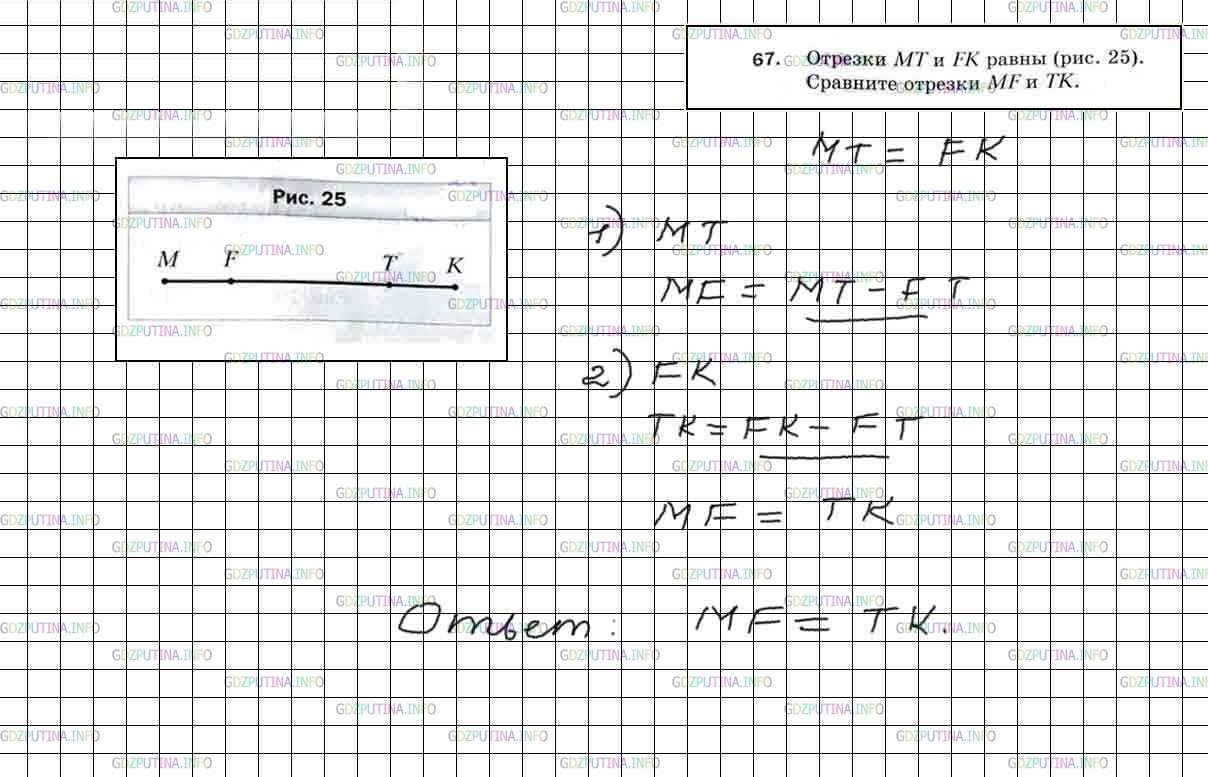 67. Отрезки MT и FK равны (рис. 25).
Сравните отрезки MF и TK.
MT = FK
Рис. 25
M F T K
1) MT
MF = MT - FT
2) FK
TK = FK - FT
MF = TK
Ответ: MF = TK.
GDZPUTINA.INFO